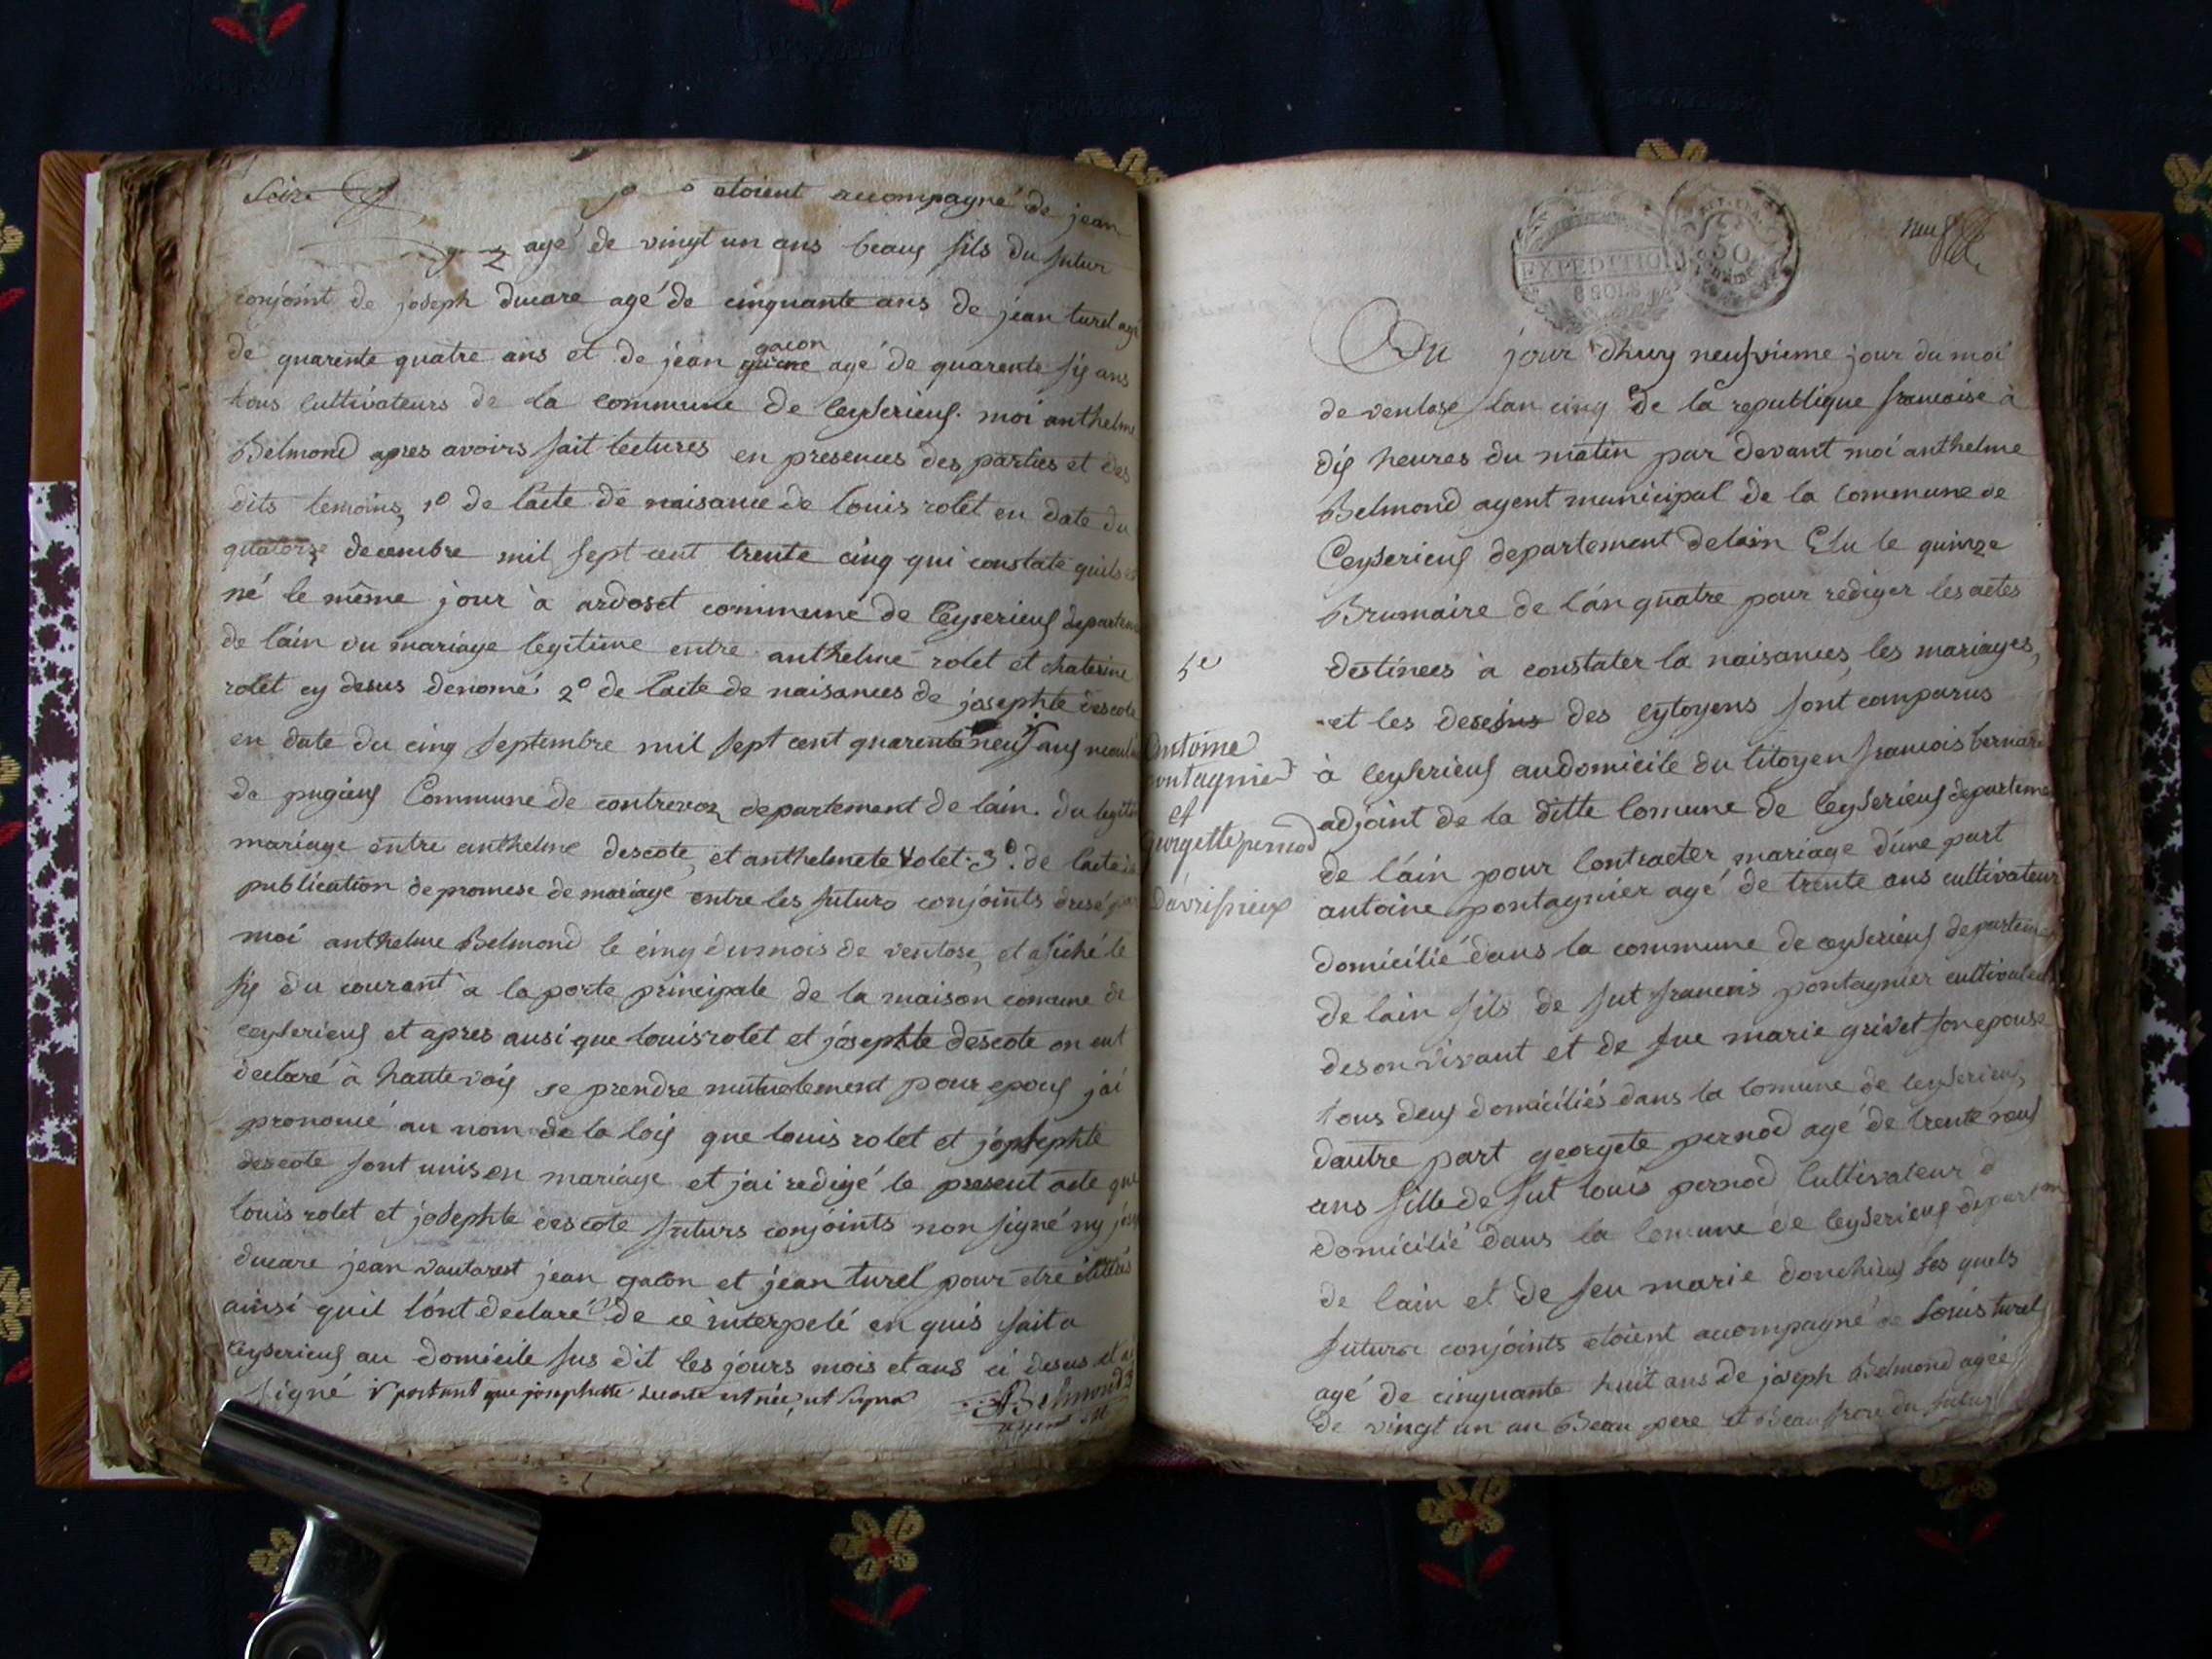 etoient accompagné de jean
agé de vingt un ans beauf fils du futur
conjoint de joseph ducare agé de cinquante ans de jean turel agé
de quarente quatre ans et de jean gacon agé de quarente sif ans
tous cultivateurs de la commune de Ceyserieuf. moi anthelme
Belmond apres avoirs fait lectures en presences des parties et des
dits temoins, 1º de lacte de naisance de louis rolet en date du
quatorze decembre mil sept cent trente cinq qui constate quils est
né le même jour à ardoset commune de Ceyserieuf departem
de lain du mariage legitime entre anthelme rolet et chaterine
rolet cy desus denomé 2º de lacte de naisances de josephte descote
en date du cinq septembre mil sept cent quarente neuf
de pugieuf Commune de contrevoz departement de lain. du legitim
mariage entre anthelme descote, et anthelmete rolet. 3º. de lacte de
publication de promese de mariage entre les futurs conjoints dresé par
moi anthelme Belmond le cinq du mois de ventose, et afiché le
sif du courant à la porte principale de la maison comune de
ceyserieuf et apres ausi que louis rolet et josephte descote on eut
declaré à haute voif se prendre mutuelement pour epouf jai
prononcé au nom de la loif que louis rolet et josephte
descote sont unis en mariage et jai redigé le present acte que
louis rolet et josephte descote futurs conjoints non signé ny jose
ducare jean vautaret jean gacon et jean turel pour etre iliterés
ainsi quil lont declaré de ce interpelé en quis fait a
Ceyserieuf au domicile sus dit les jours mois et ans ci desus et ai
signé
Belmond
agent
neuf
EXPEDITION
8 SOLS
50
Du jour dhuy neufvieme jour du moi
de ventose lan cinq de la republique francaise à
dif heures du matin par devant moi anthelme
Belmond agent municipal de la Commune de
Ceyserieuf departement de lain Elu le quinze
Brumaire de lan quatre pour rediger les actes
destinees à constater la naisances, les mariages,
et les deseins des cytoyens sont comparus
à Ceyserieuf au domicile du Citoyen francois bernard
adjoint de la ditte Comune de Ceyserieuf departeme
de lain pour Contracter mariage dune part
antoine pontagnier agé de trente ans cultivateur
domicilié dans la commune de ceyserieuf departeme
de lain fils de fut francois pontagnier cultivateur
de son vivant et de fue marie grivet son epouse
tous deuf domiciliés dans la Comune de Ceyserieuf
dautre part georgete pernod agé de trente neuf
ans fille de fut louis pernod Cultivateur d
domicilié dans la Comune de Ceyserieuf departem
de lain et de feu marie donchieuf les quels
futurs conjoints etoient acompagné de Louis turel
agé de cinquante huit ans de joseph Belmond agée
de vingt un an Beau pere et Beau frere du futur
5e
Antoine
pontagnier
et
georgette pernod
Davrisieux